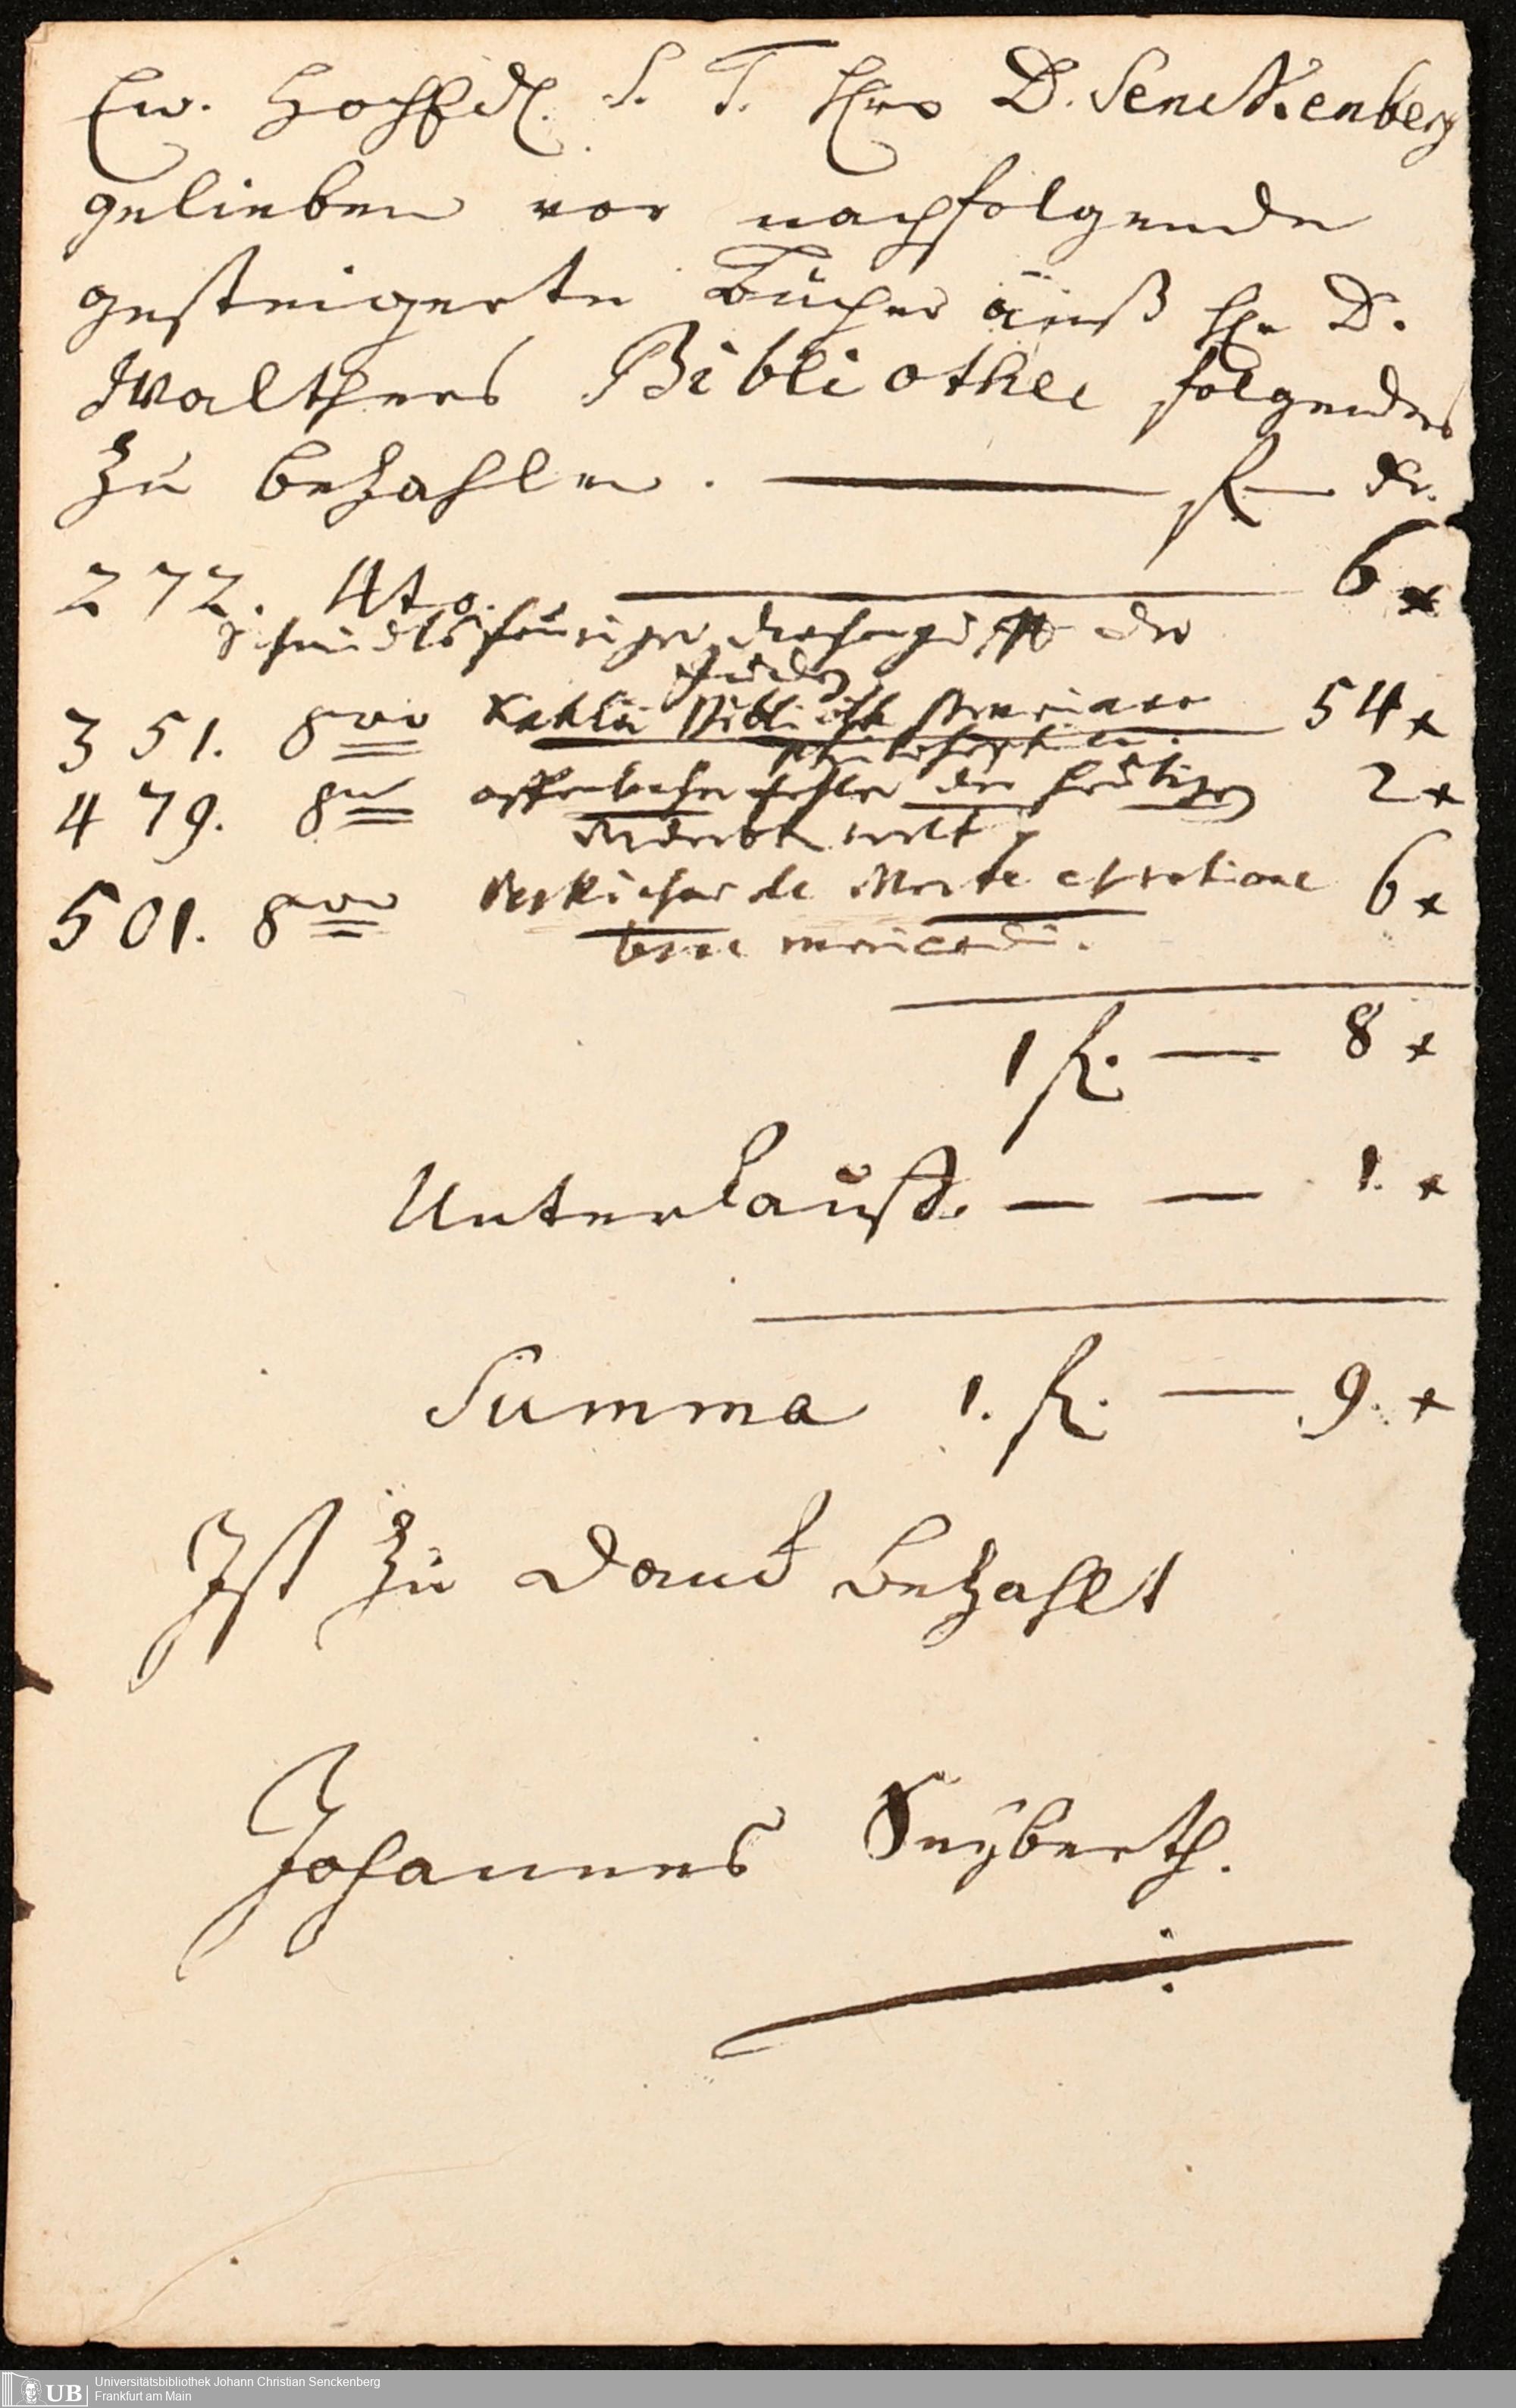 Ew. Hochedl. S. T. Herr D. Senckenberg
gelieben vor nachfolgende
gesteigerte Bücher auß Hr D.
Walthers Bibliothec folgendes
zu bezahlen. — fl. — xr.
272. 4to. — 6 x
der
351. 8vo 54 x
479. 8vo offenbahre der heutigen 2 x
welt
501. 8vo de Morte et ratione 6 x
bene moriendi.
1 fl. — 8 x
Unterkauff. — — 1. x
Summa 1. fl. — 9. x
Ist zu Danck bezahlt
Johannes Seyberth.
UB Universitätsbibliothek Johann Christian Senckenberg
Frankfurt am Main